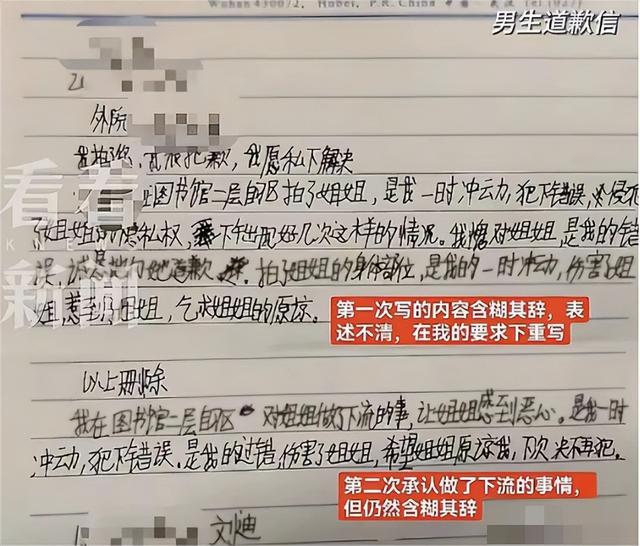 Wuhan 430072, Hubei, P.R. China 中国·武汉 Tel (027)
男生道歉信
外院
我拍了您,很抱歉,我愿私下解决
图书馆二层自区拍了姐姐,是我一时冲动,犯下错误,侵犯
了姐姐隐私权,下出现好几次这样的情况。我愧对姐姐,是我的错
误,诚恳地向她道歉。拍了姐姐的身体部位,是我的一时冲动,伤害了姐
姐,惹到了姐姐,乞求姐姐的原谅。
第一次写的内容含糊其辞,表
述不清,在我的要求下重写
以上删除
我在图书馆二层自区对姐姐做了下流的事,让姐姐感到恶心。是我一时
冲动,犯下错误。是我的过错,伤害了姐姐,希望姐姐原谅我,下次决不再犯。
第二次承认做了下流的事情,
但仍然含糊其辞
看看
KNEWS
新闻